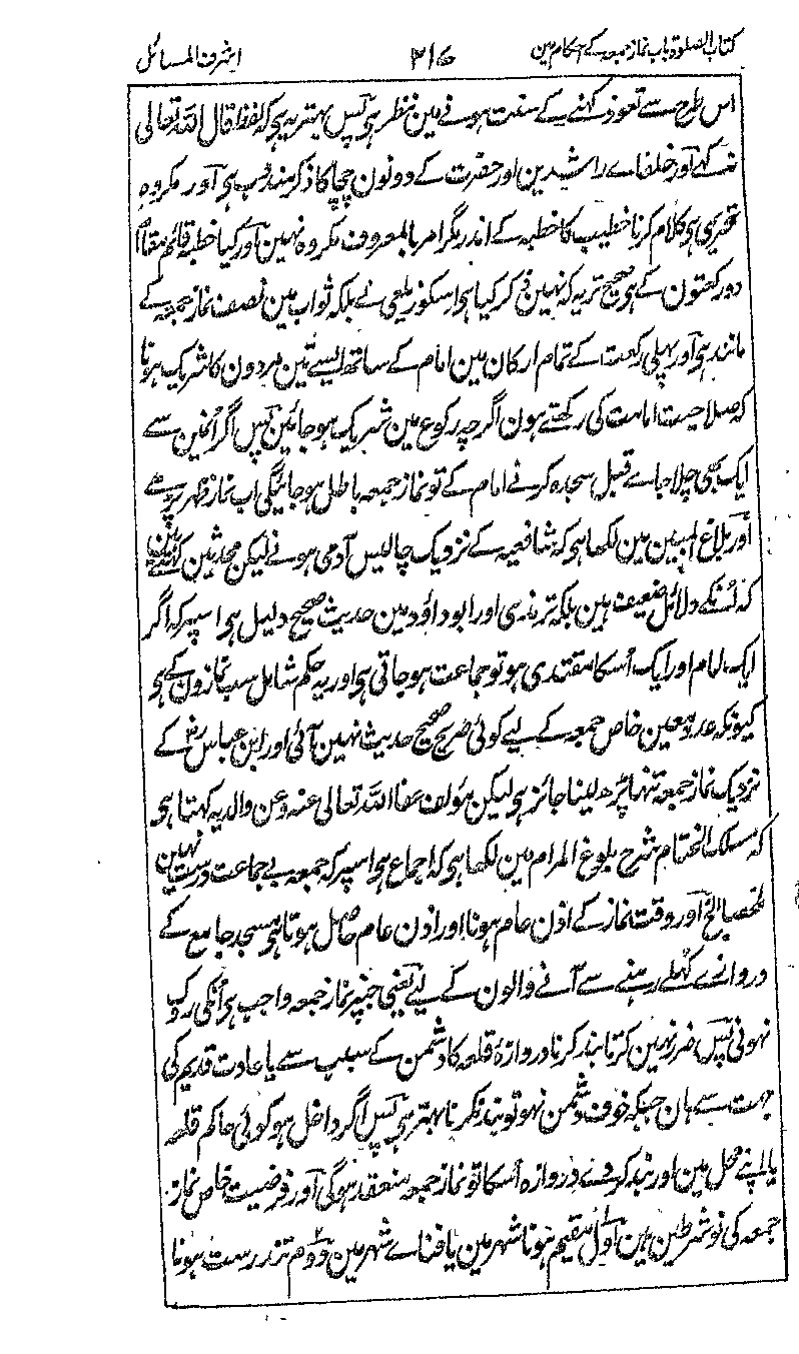 کتاب الصلوة باب نماز جمعہ کے احکام مین
۲۱۶
اشرف المسائل
اس طرح سے تعوذ کہنے کے سنت ہونے مین نظر ہی پس بہتر یہ ہی کہ لفظ قال اللہ تعالی
نہ کہے آور خلفاے راشدین اور حضرت کے دونون چچا کا ذکر مندوب ہی آور مکروہ
تحریمی ہی کلام کرنا خطیب کا خطبہ کے اندر مگر امر بالمعروف مکروہ نہین آور کیا خطبہ قائم مقام
دو رکعتون کے ہی صحیح تر یہ کہ نہین ذکر کیا ہی اسکو زیلعی نے بلکہ ثواب مین نصف نماز جمعہ کے
مانند ہی آور پہلی رکعت کے تمام ارکان مین امام کے ساتھ ایسے تین مردون کا شریک ہونا
کہ صلاحیت امامت کی رکھتے ہون اگرچہ رکوع مین شریک ہو جائین پس اگر انمین سے
ایک بھی چلا جاے قبل سجدہ کرنے امام کے تو نماز جمعہ باطل ہو جائیگی اب نماز ظہر پڑھے
آور بلاغ المبین مین لکھا ہی کہ شافعیہ کے نزدیک چالیس آدمی ہونے لیکن محدثین کہتے ہین
کہ اُنکے دلائل ضعیف ہین بلکہ ترمذی اور ابو داؤد مین حدیث صحیح دلیل ہی اسپر کہ اگر
ایک امام اور ایک اُسکا مقتدی ہو تو جماعت ہو جاتی ہی اور یہ حکم شامل سب نمازون کے ہی
کیونکہ عدد معین خاص جمعہ کے لیے کوئی صریح صحیح حدیث نہین آئی اور ابن عباس رض کے
نزدیک نماز جمعہ تنہا پڑھ لینا جائز ہی لیکن مؤلف عفا اللہ تعالی عنہ وعن والدیہ کہتا ہی
کہ مسک الختام شرح بلوغ المرام مین لکھا ہی کہ اجماع ہی اسپر کہ جمعہ بے جماعت درست نہین
آور وقت نماز کے اذن عام ہونا اور اذن عام حاصل ہوتا ہی مسجد جامع کے
دروازے کھلے رہنے سے آنے والون کے لیے یعنی جنپر نماز جمعہ واجب ہی اُنکی روک
نہوئی پس ضرر نہین کرتا بند کرنا دروازۂ قلعہ کا دشمن کے سبب سے یا عادت قدیم کی
جہت سے ہان جبکہ خوف دشمن نہو تو بند نکرنا بہتر ہی پس اگر داخل ہو کوئی حاکم قلعہ
یا اپنے محل مین اور بند کر دے دروازہ اُسکا تو نماز جمعہ منعقد ہوگی آور فرضیت خاص نماز
جمعہ کی نو شرطین ہین اول مقیم ہونا شہر مین یا فناے شہر مین دوم تندرست ہونا